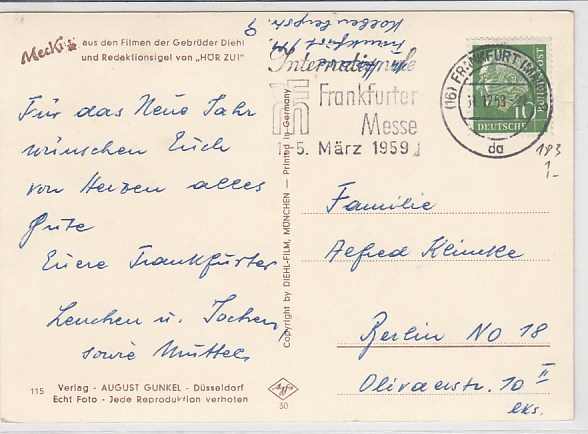 Mecki aus den Filmen der Gebrüder Diehl
und Redaktionsigel von „HÖR ZU!"
Für das Neue Jahr
wünschen Euch
von Herzen alles
Gute
Euere Frankfurter
Lenchen u. Jochen,
sowie Mutter.
115 Verlag - AUGUST GUNKEL - Düsseldorf
Echt Foto - Jede Reproduktion verboten
Copyright by DIEHL-FILM, MÜNCHEN — Printed in Germany
Agfa
30
Frankfurt
Internationale
Frankfurter
Messe
1.-5. März 1959
(16) FRANKFURT (MAIN)
12.58
da
10
DEUTSCHE POST
183
1,-
Familie
Alfred Klimke
Berlin NO 18
Olivaerstr. 10 II
lks.